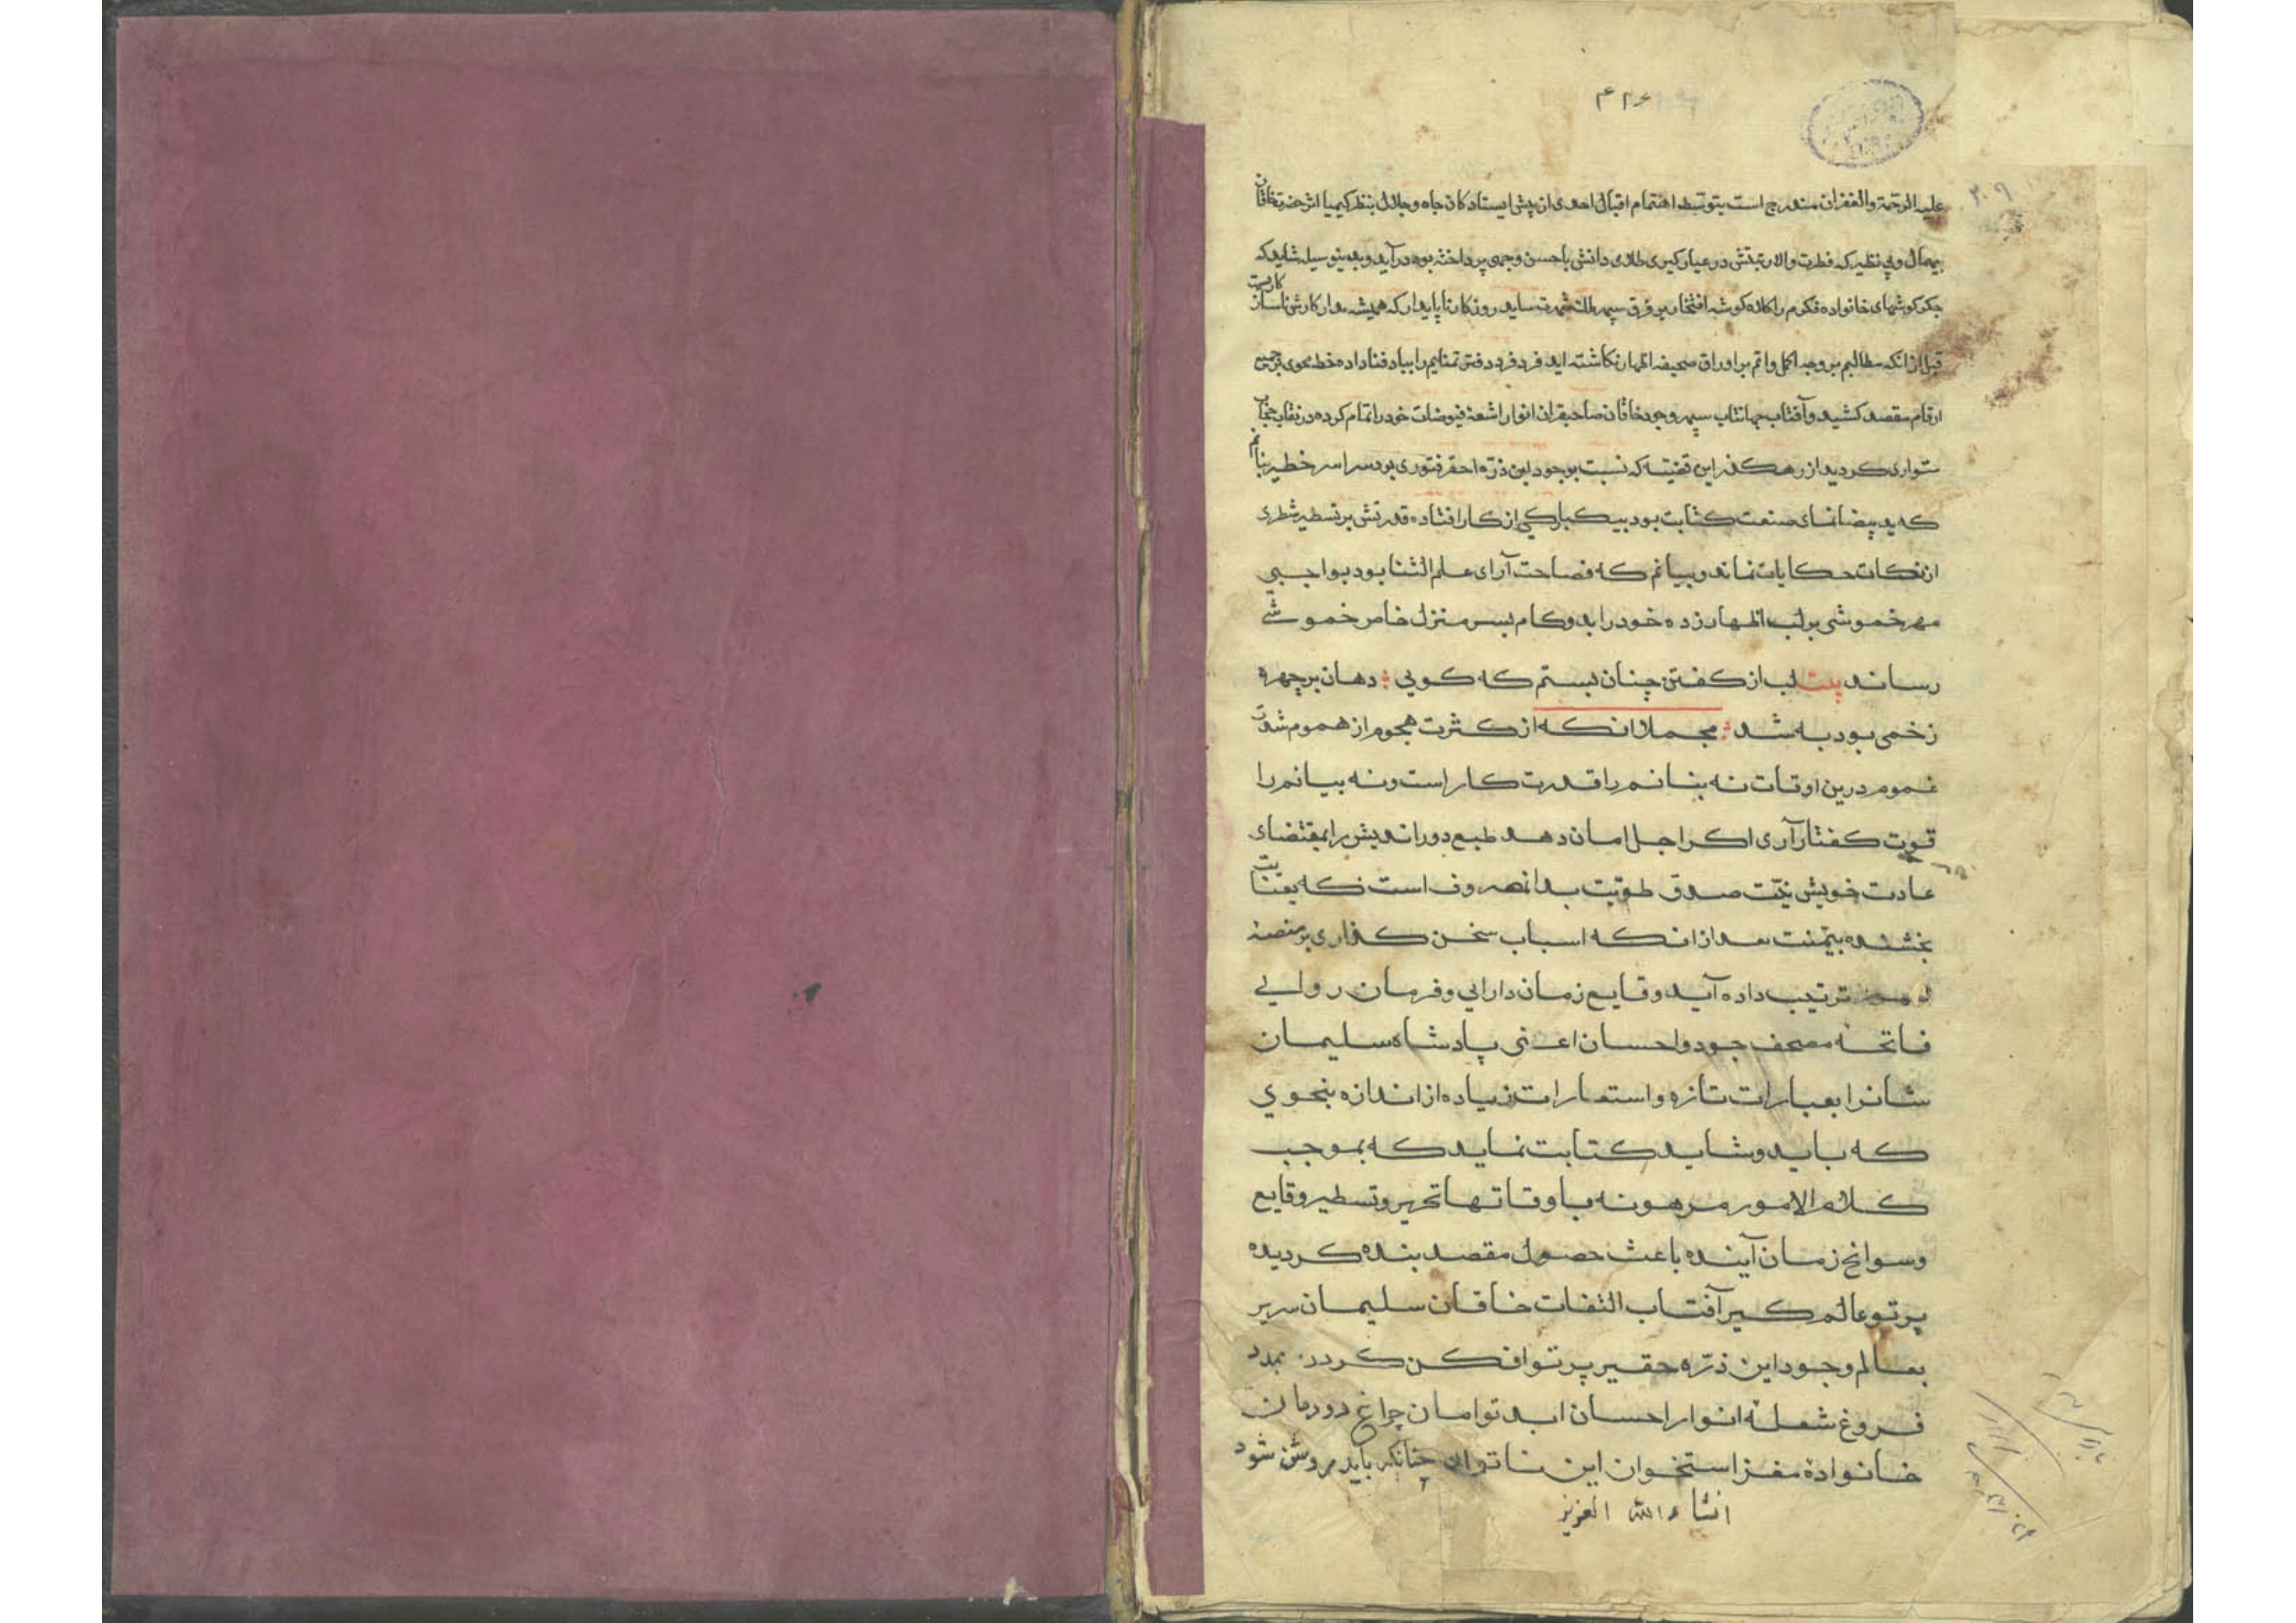 ۴۲۶
۲۰۹
علیه الرحمة والغفران مندرج است بتوسط اهتمام اقبال احدی از پیش ایستادکان جاه و جلال بنظر کیمیا اثر حضرت خاقان
بیمال و بی نظیر که فطرت والا رتبتش در عیار کیری طلای دانش باحسن وجهی پرداخته بود درآید و بدینوسیله شاید که
جکر کوشهای خانواده فکرم را کلاه کوشه افتخار بر فرق سپهر ملک شهرت ساید روزکار ناپایدار که همیشه مدار کارش ناسازکاریست
قبل از انکه مطالبم بر وجه اکمل و اتم بر اوراق صحیفه اظهار نکاشته اید فرد فرد دفتر تمنایم را بباد فنا داده خط محوی بر جمیع
ارقام مقصد کشید و آفتاب جهانتاب سپهر وجود خاقان صاحبقران انوار اشعهٔ فیوضات خود را تمام کرده در نقاب حجاب
متواری کردید از رهکذر این قضیه که نسبت بوجود این ذره احقر فتوری بود سراسر خطر بنانم
که ید بیضا نمای صنعت کتابت بود بیکبارکی از کار افتاده قدرتش بر تسطیر شطری
از نکات حکایات نماند و بیانم که فصاحت آرای علم الثنا بود بواجبی
مهر خموشی بر لب اظهار زده خود را بدو کام بسر منزل خاص خموشی
رساند بیت لب از کفتن چنان بستم که کویی : دهان بر چهره
زخمی بود به شد : مجملا انکه از کثرت هجوم از هموم شدت
غموم درین اوقات نه بنانم را قدرت کار است و نه بیانم را
قوت کفتار آری اکر اجل امان دهد طبع دور اندیش را بمقتضای
عادت خویش نیت صدق طویت بدانمصروف است که بعنایت
بخشنده بیمنت بعد از انکه اسباب سخن کذاری بر منصهٔ
ترتیب داده آید وقایع زمان دارایی و فرمان روایی
فاتحه مصحف جود و احسان اعنی پادشاه سلیمان
شانرا بعبارات تازه و استعارات زیاده از اندازه بنحوی
که باید و شاید کتابت نماید که بموجب
کلام الامور مرهونه باوقاتها تحریر و تسطیر وقایع
و سوانح زمان آینده باعث حصول مقصد بنده کردیده
پرتو عالم کیر آفتاب التفات خاقان سلیمان سریر
بعالم وجود این ذره حقیر پرتو افکن کردد بمدد
فروغ شعله انوار احسان ابد توامان چراغ دودمان
خانوادهٔ مغز استخوان این ناتوان چنانکه باید روشن شود
انشاء الله العزیز